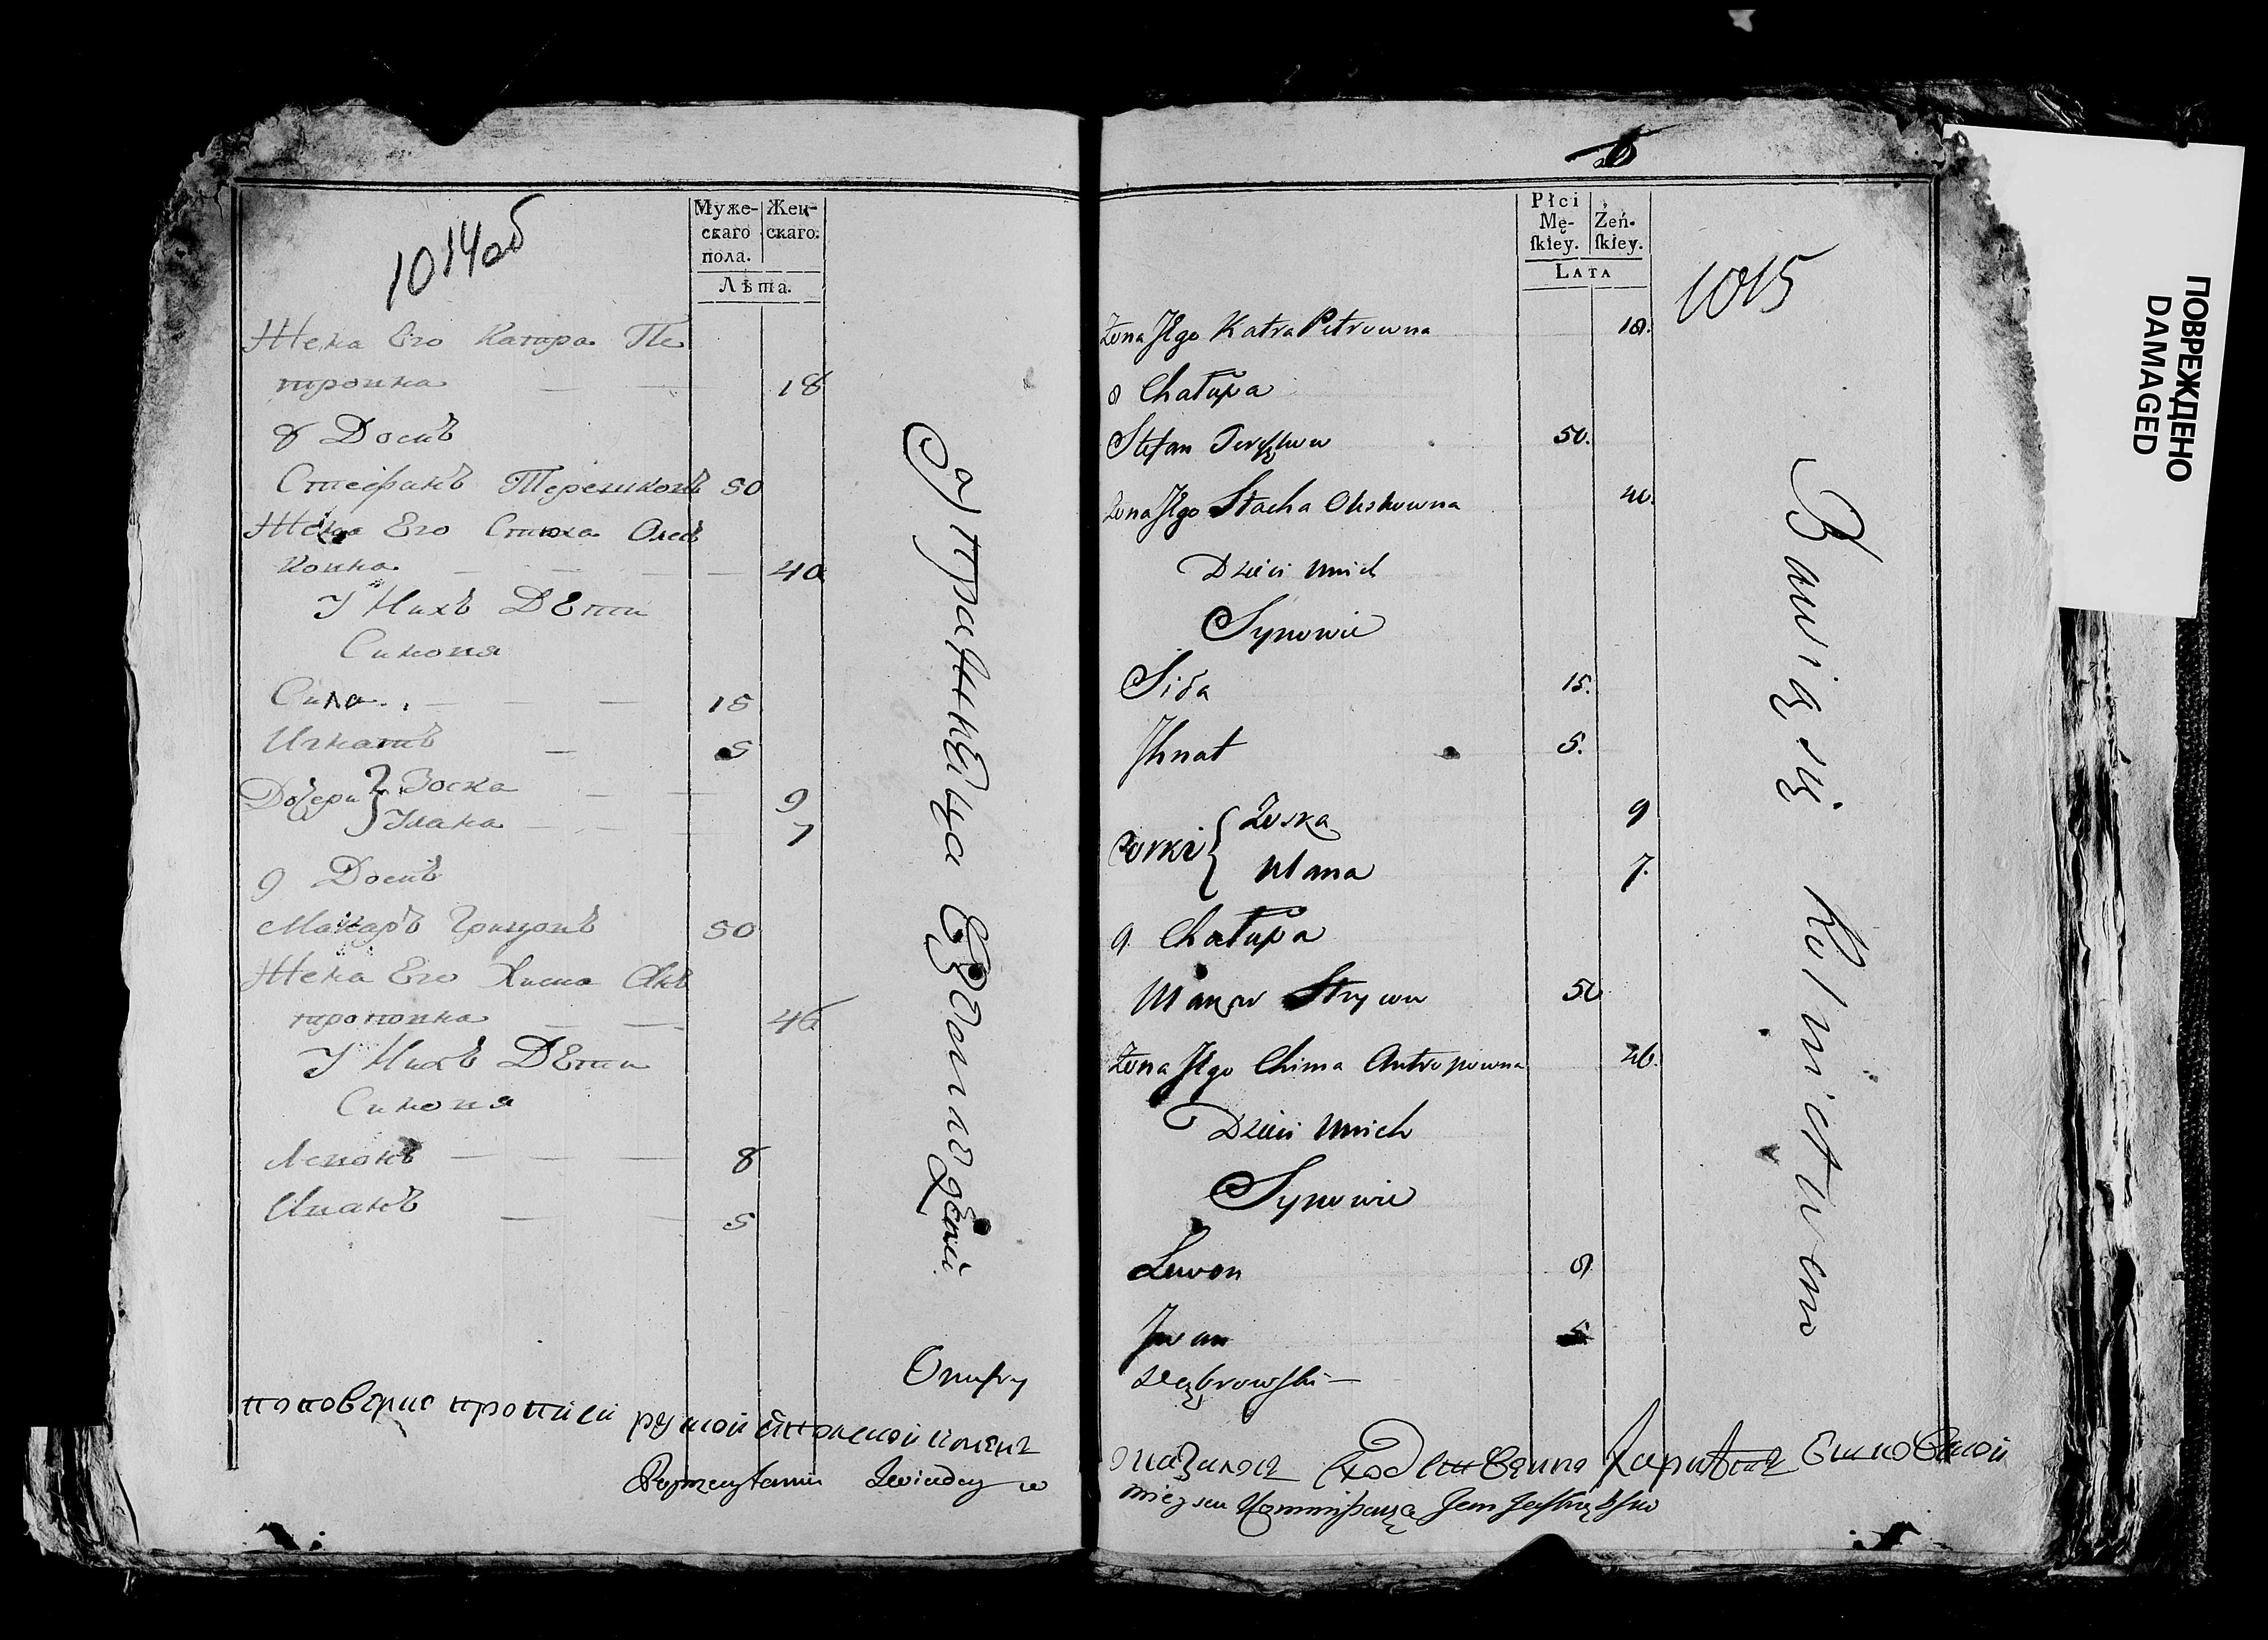 1014 об
Муже-
скаго
пола.
Жен-
скаго.
Лѣта.
Жена Его Катра Пе
тровна 18
8 Домъ
Стефанъ Терешковъ 50
Жена Его Стаха Олес
ковна 40
У Нихъ Дѣти
Синовя
Сила 15
Игнатъ 5
Дочери Зоска 9
Улана 7
9 Домъ
Макаръ Грицовъ 50
Жена Его Химa Ан
троповна 46
У Нихъ Дѣти
Синовя
Левонъ 8
Иванъ 5
Упражняеца
Onufry
рукой
w
5
1015
Płci
Mę-
ſkiey.
Żeń-
ſkiey.
LATA
Żona Jego Katra Petrowna 18.
8 Chałupa
Stefan 50.
Żona Jego Stacha Oleskowna 40.
Dzieci Unich
Synowie
Siła 15.
Ihnat 5.
Corki Zoska 9
Ulana 7.
9. Chałupa
Makar 50
Żona Jego Chima Antropowna 46.
Dzieci Unich
Synowie
Lewon 8
Iwan 5
Dąbrowski
Bawią się Rolnictwem
mieysca Kommissarza Jan
ПОВРЕЖДЕНО
DAMAGED